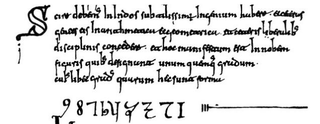 Scire debem' In Indos subtilissimū Ingenium habere et ceteras
gentes eis In arithmetica et geometria et ceteris liberalib'
disciplinis concedere et hoc manifestum est In nobem
figuris quib' designant unum quemq' gradum
cuiuslibet gradus quarum hec sunt forma
9 8 7 6
2 1